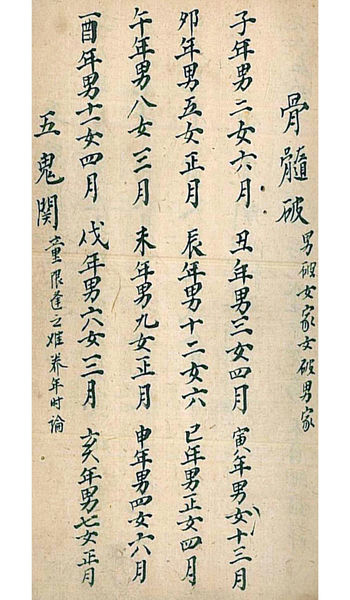 骨髓破 男破女家女破男家
子年男二女六月 丑年男三女四月 寅年男女十三月
卯年男五女正月 辰年男十二女六 巳年男正女四月
午年男八女三月 未年男九女正月 申年男四女六月
酉年男十一女四月 戌年男六女三月 亥年男七女正月
五鬼関 童限逢之难养年时論